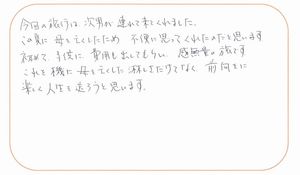 今回の旅行は、次男が連れて来てくれました。
この夏に母を亡くしたため 不便に思ってくれたのだと思います
初めて、子供に費用も出してもらい、感無量の旅です
これを機に母を亡くした淋しさだけでなく、前向きに
楽しく人生を送ろうと思います。